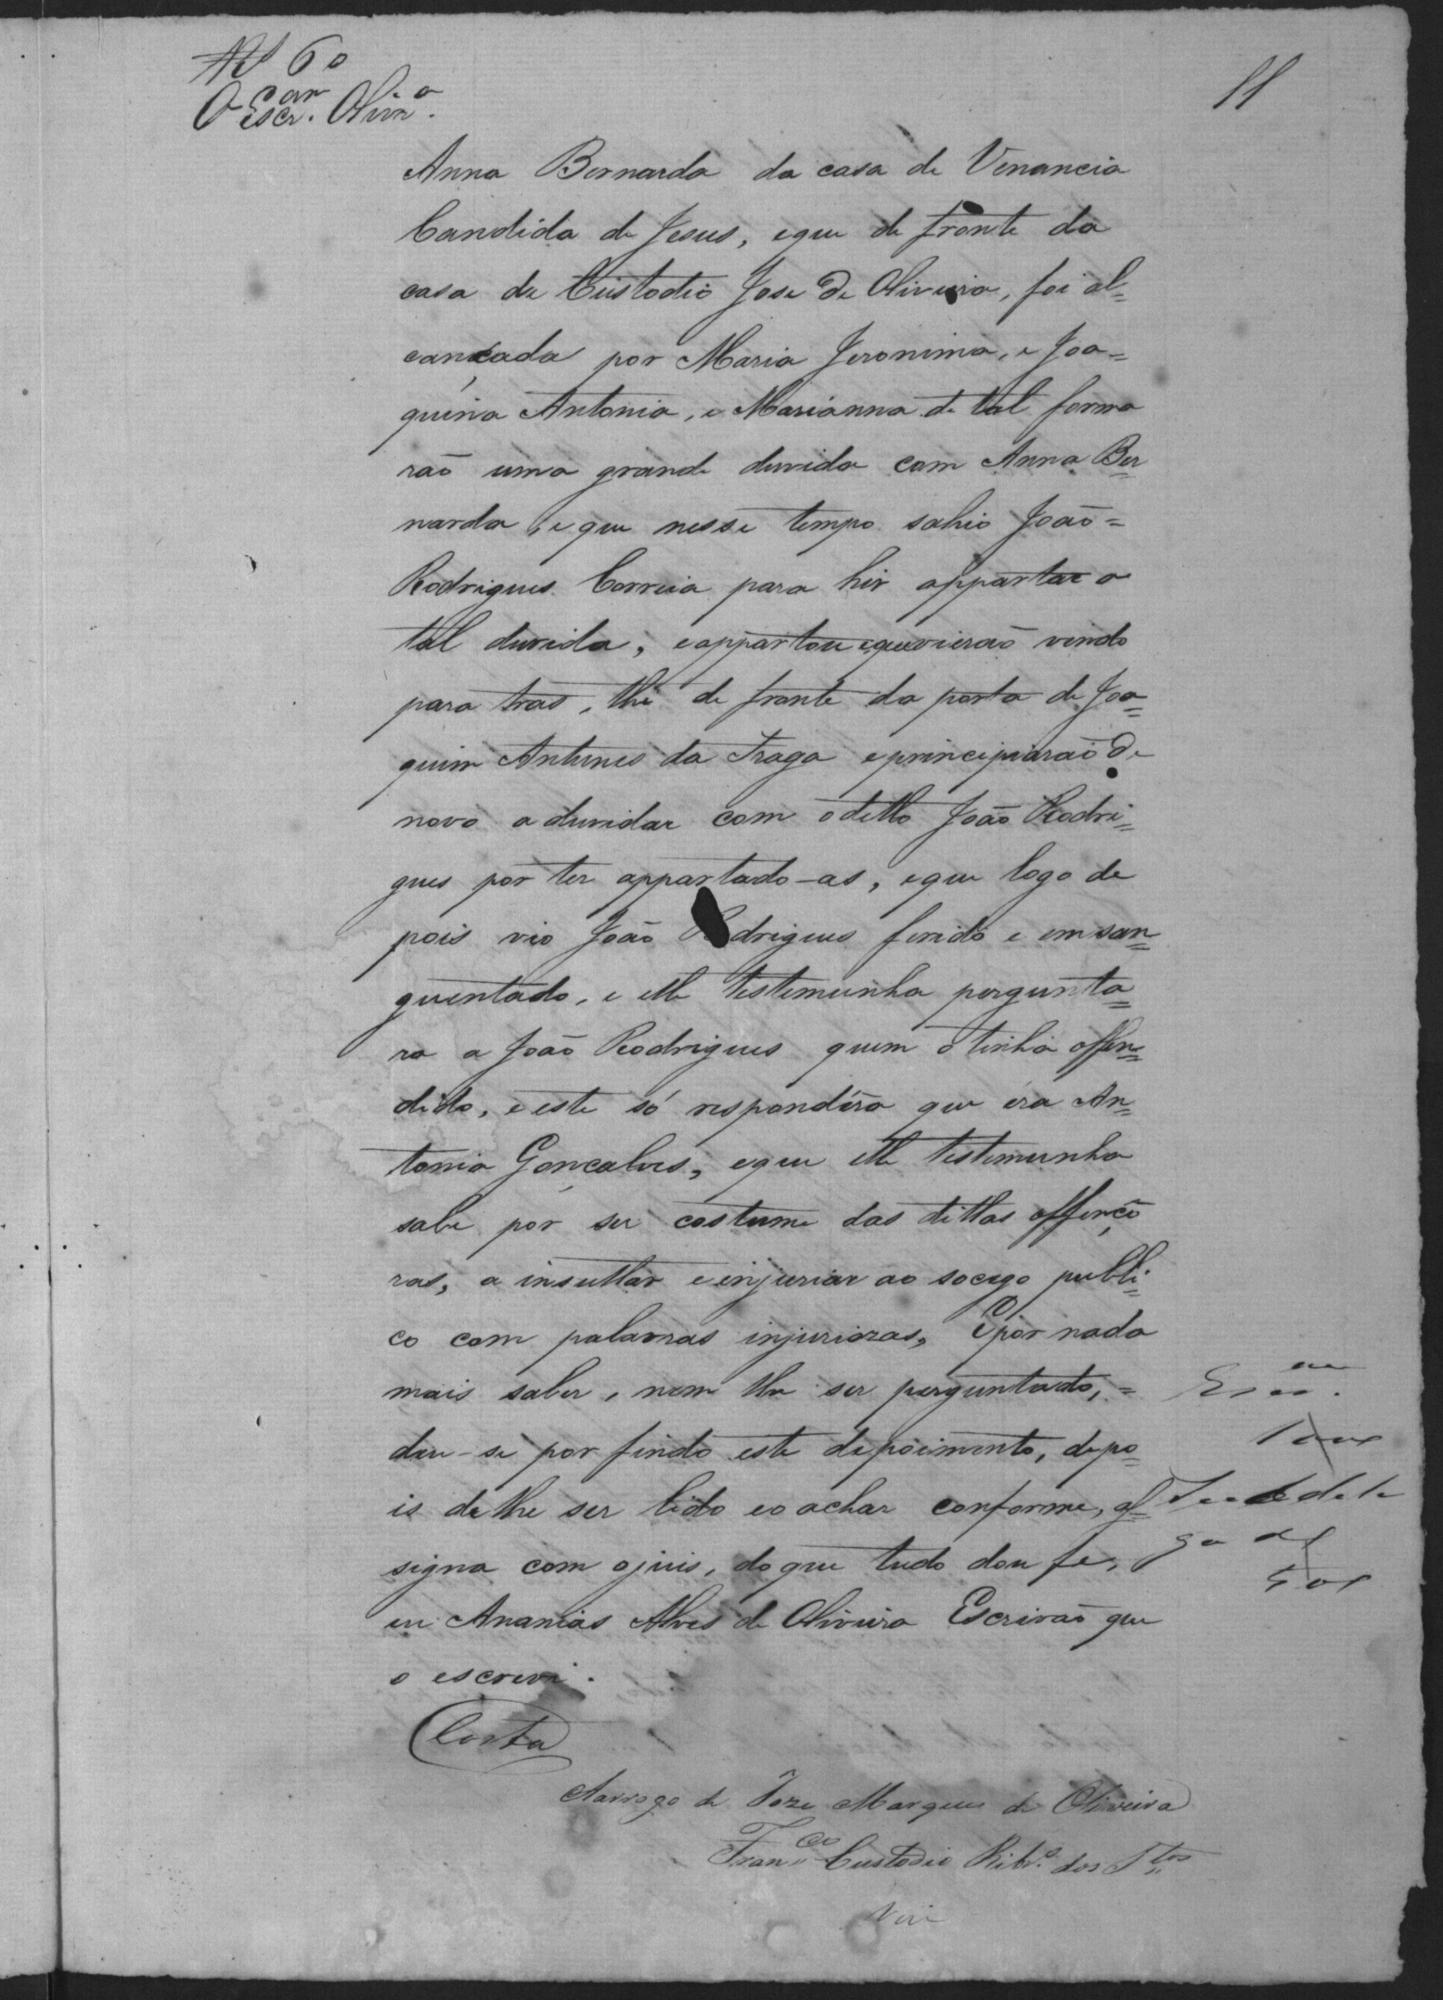 Nº 60
O Escr.am Oliv.ra
11
Anna Bernarda da casa de Venancia
Candida de Jesus, eque de fronte da
casa de Custodio Jose de Oliveira, foi al=
cançada por Maria Jeronima, e Joa=
quina Antonia, e Marianna de tal forma
rão uma grande duvida com Anna Ber=
narda, e que nesse tempo sahio João=
Rodrigues Correia para hir appartar a
tal duvida, e appartou eque vierão vindo
para tras, thé de fronte da porta de Joa=
quim Antunes da Fraga e principiarão de
novo a duvidar com o ditto João Rodri=
gues por ter appartado-as, eque logo de
pois vio João Rodrigues ferido e emsan=
guentado, e elle testemunha pergunta=
ra a João Rodrigues quem o tinha offen=
dido, e este só respondêra que éra An=
tonia Gonçalves, eque elle testemunha
sabe por ser costume das dittas offenço
ras, a insultar e injuriar ao socego publi=
co com palavras injuriozas, E por nada
mais saber, nem lhe ser perguntado,=
deu-se por findo este depoimento, depo=
is de lhe ser lido e o achar conforme, as=
signa com o juis, do que tudo dou fé,
eu Ananias Alves de Oliveira Escrivão que
o escrevi.
Costa
Aarrogo de Joze Marques de Oliveira
Fran.co Custodio Ribr.o dos S.tos